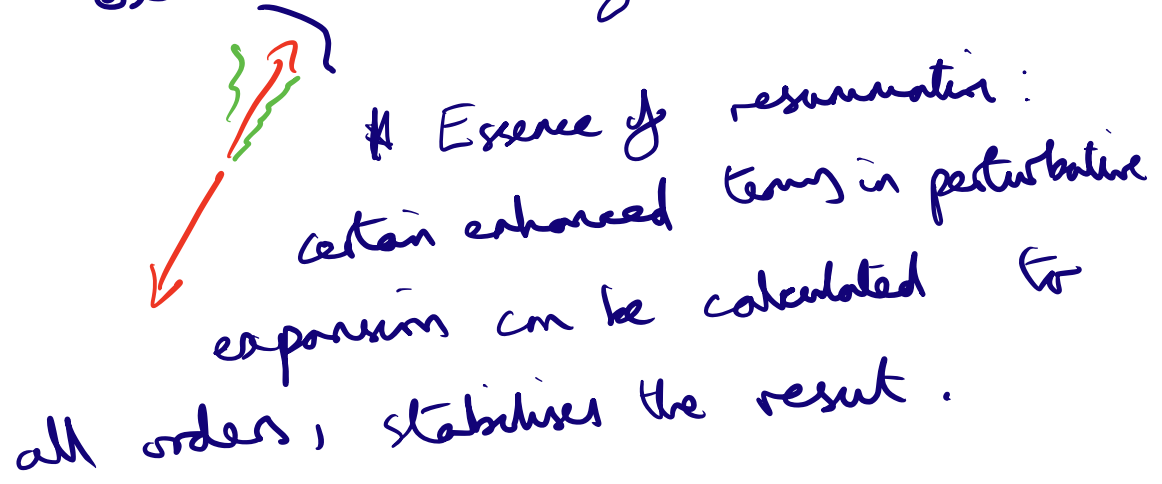 # Essence of resummation :
certain enhanced terms in perturbative
expansion can be calculated to
all orders, stabilises the result.